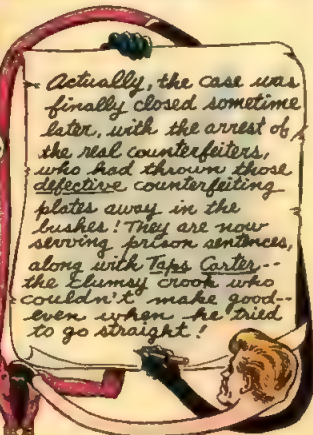 Actually, the case was
finally closed sometime
later, with the arrest of
the real counterfeiters,
who had thrown those
defective counterfeiting
plates away in the
bushes! They are now
serving prison sentences,
along with Taps Carter--
the clumsy crook who
couldn't make good--
even when he tried
to go straight!